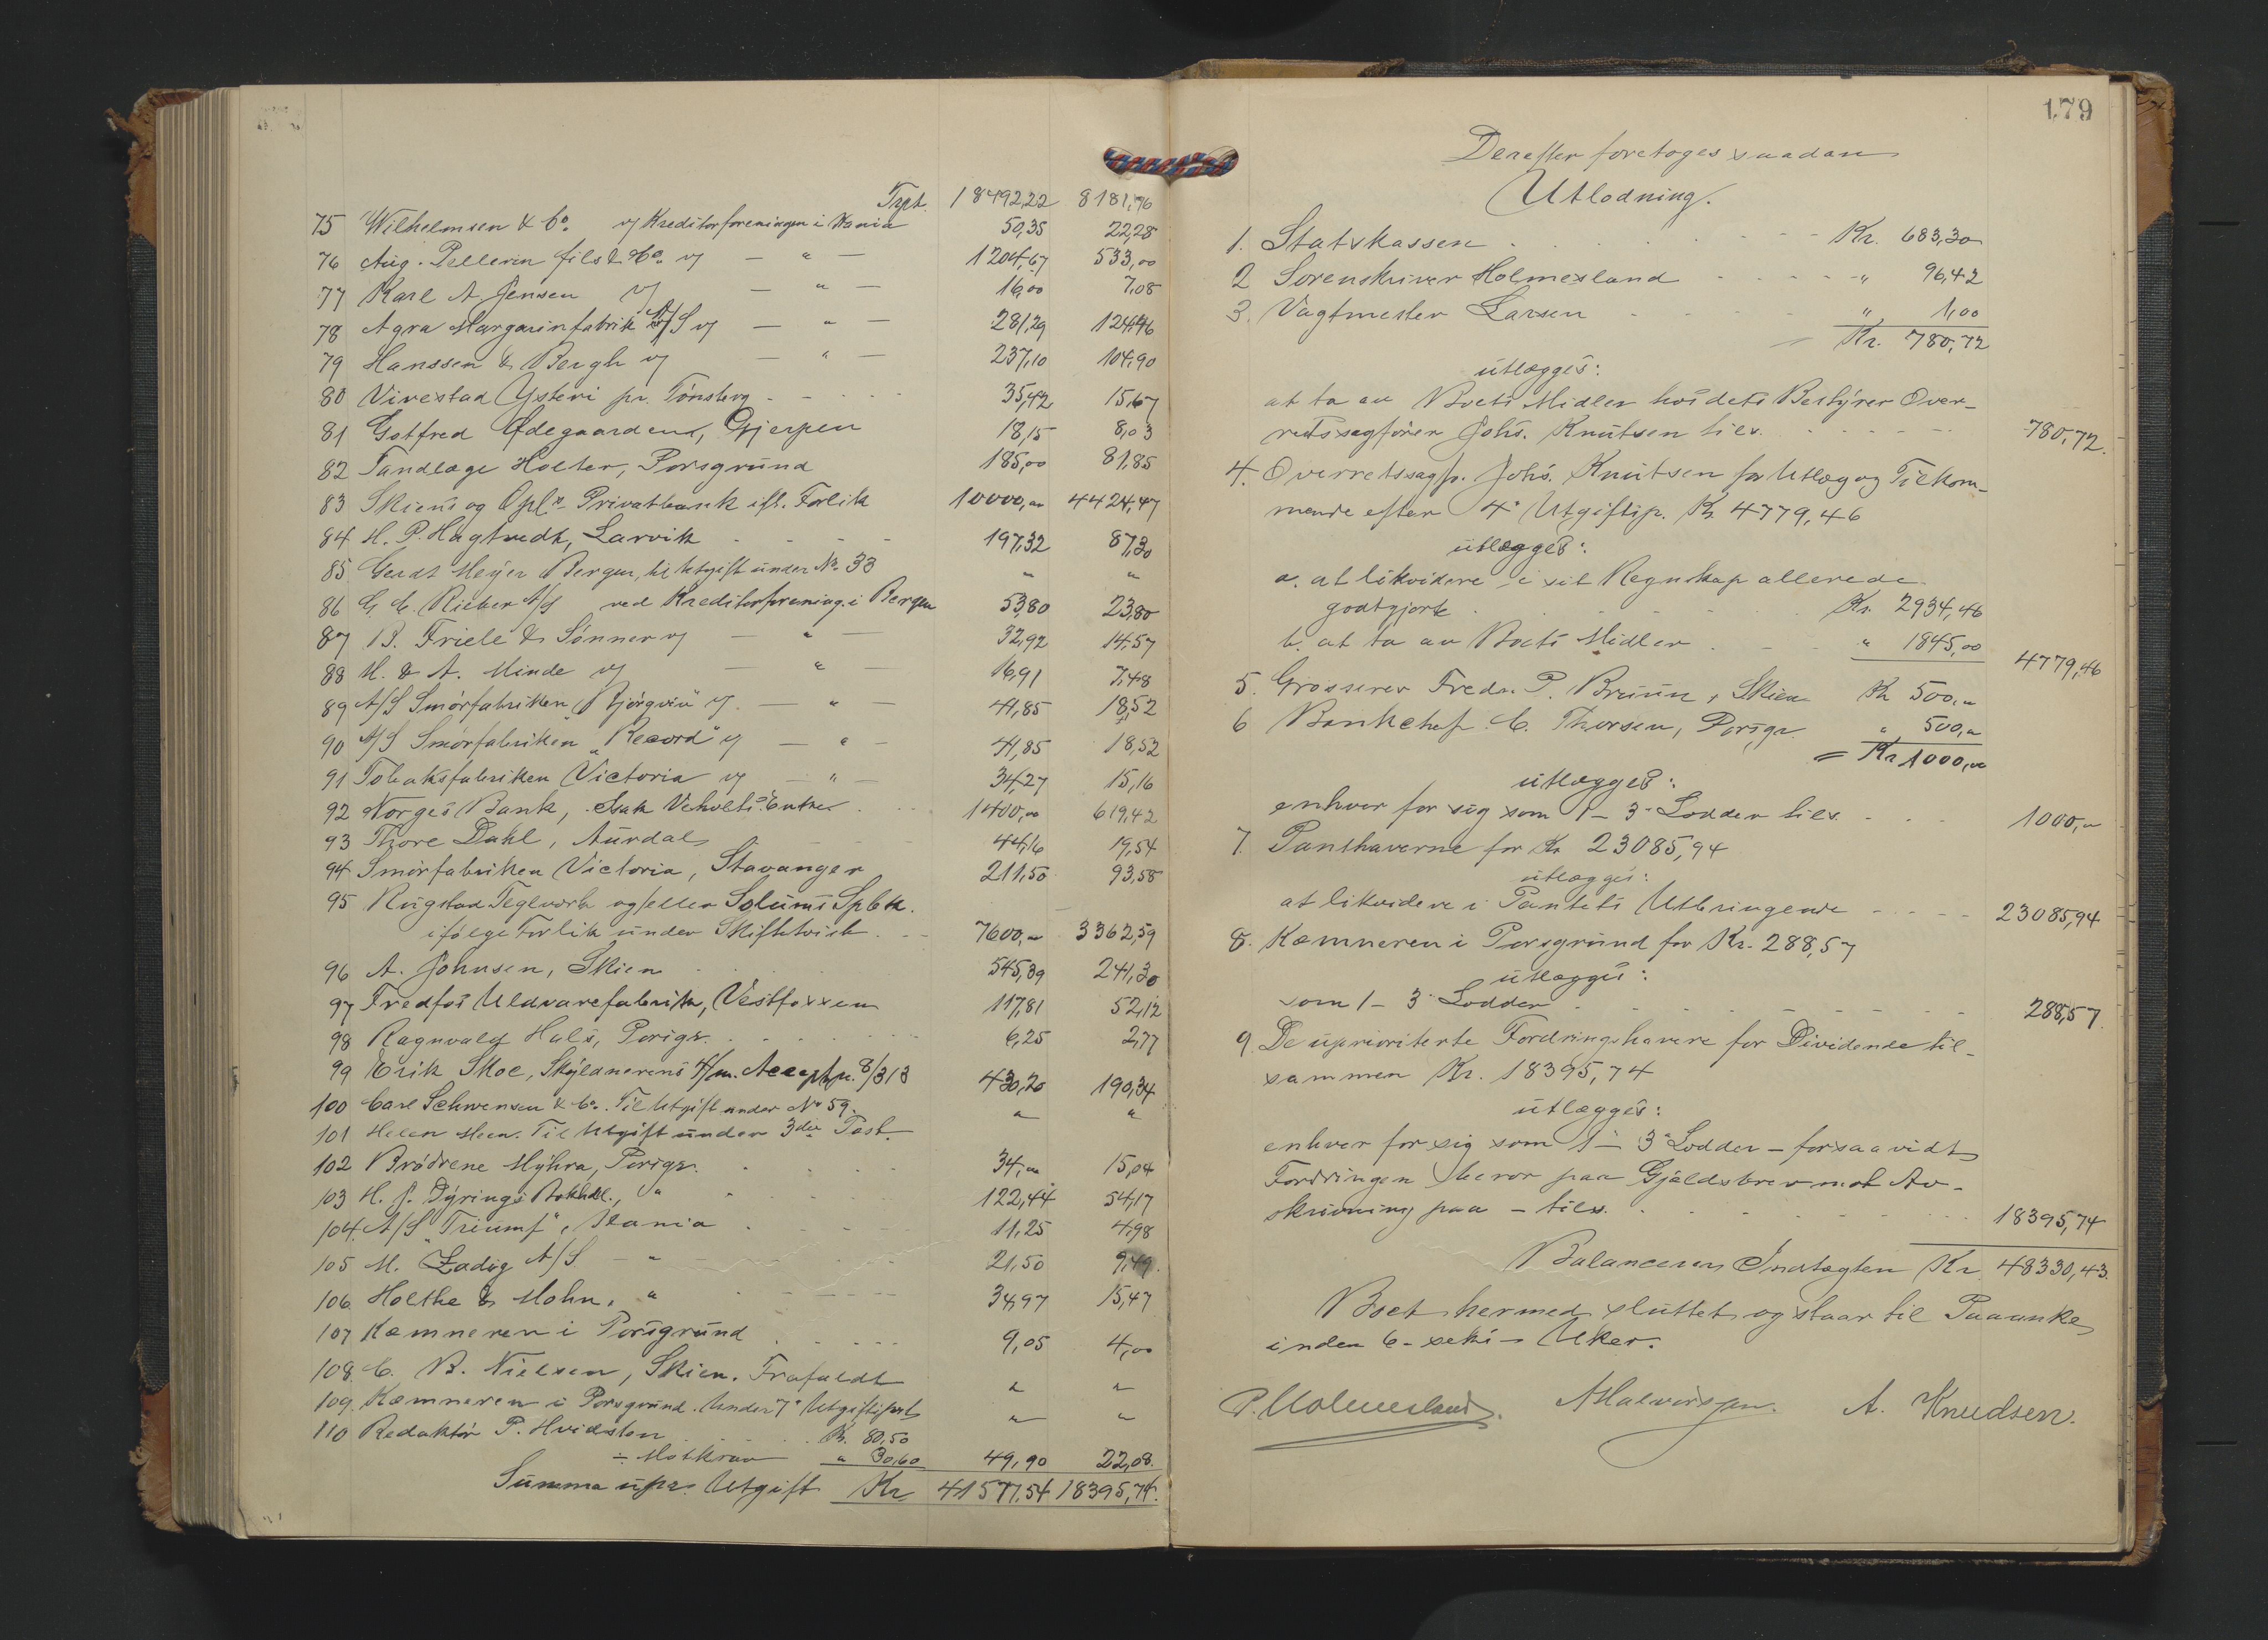 Trpt. 18492,22 8181,76
75 Wilhelmsen & Co. v/ Kreditorforeningen i Kania 50,35 22,28
76 Aug. Pellerin fils & Co. v/ — " — 1204,67 533,00
77 Karl A Jensen v/ — " — 16,00 7,08
78 Agra Margarinfabrik A/S v/ — " — 281,29 124,46
79 Hanssen & Bergh v/ — " — 237,10 104,90
80 Virestad Ysteri pr. Tönsberg 35,42 15,67
81 Gotfred Ødegaarden, Gjerpen 18,15 8,03
82 Tandlæge Holter, Porsgrund 185,00 81,85
83 Skiens og Opl.s Privatbank ifl. Forlik 10000,00 4424,47
84 H. P. Hagtvedt, Larvik 197,32 87,30
85 Gerdt Meyer Bergen, til Utgift under No. 33 " "
86 G. C. Rieber A/S ved Kreditorforening. i Bergen 53,80 23,80
87 B. Friele & Sönner v/ — " — 32,92 14,57
88 M. & A. Minde v/ — " — 16,91 7,48
89 A/S Smörfabriken "Björgvin" v/ — " — 41,85 18,52
90 A/S Smörfabriken "Record" v/ — " — 41,85 18,52
91 Tobaksfabriken Victoria v/ — " — 34,27 15,16
92 Norges Bank, Isak Veholts Enke 1400,00 619,42
93 Thore Dahl, Aurdal 44,16 19,54
94 Smörfabriken Victoria, Stavanger 211,50 93,58
95 Rugstad Teglverk og/eller Solums Spbk.
ifölge Forlik under Skiftetvist 7600,00 3362,59
96 A. Johnsen, Skien 545,39 241,30
97 Fredfos Uldvarefabrik, Vestfossen 117,81 52,12
98 Ragnvald Hals, Porsgr. 6,25 2,77
99 Erik Skoe, Skyldnerens 4/m. Accept pr. 8/3 13 430,20 190,34
100 Carl Schwensen & Co. Til Utgift under No 59. " "
101 Helen Meen. Til Utgift under 3die Post.
102 Brödrene Myhra, Porsgr. 34,00 15,04
103 H. J. Dyrings Bokhdl., " 122,44 54,17
104. A/S "Triumf", Kania 11,25 4,98
105 M. Zadig A/S — " — 21,50 9,49.
106. Holthe & Mohn, " 34,97 15,47
107 Kæmneren i Porsgrund 9,05 4,00
108. C. B. Nielsen, Skien. Frafaldt " "
109. Kæmneren i Porsgrund. Under 7' Utgiftspost " "
110 Redaktör P. Hvidsten Kr. 80,50
÷ Motkrav " 30,60 49,90 22,08.
Summa upr. Utgift Kr 41577,54 18395,74.
179
Derefter foretoges saadan
Utlodning.
1. Statskassen Kr. 683,30
2 Sorenskriver Holmesland " 96,42
3. Vagtmester Larsen " 1,00
Kr. 780,72
utlægges:
at ta av Boets Midler hos dets Bestyrer Over-
retssagförer Johs. Knutsen tils. 780,72.
4. Overretssagf. Johs. Knutsen for Utlæg og Tilkom-
mende efter 4' Utgiftsp. Kr 4779,46
utlægges:
a. at likvidere i sit Regnskap allerede
godtgjort Kr. 2934,46
b. at ta av Boets Midler " 1845,00 4779,46
5. Grosserer Fredr. P. Bruun, Skien Kr 500,00
6 Bankchef C. Thorsen, Porsgr. " 500,00
= Kr 1000,00
utlægges:
enhver for sig som 1–3' Lodder tils. 1000,00
7. Panthaverne for Kr 23085,94
utlægges:
at likvidere i Pantets Utbringende 23085,94
8. Kæmneren i Porsgrund for Kr. 288,57
utlægges:
som 1–3' Lodder 288,57.
9. De uprioriterte Fordringshavere for Dividende til-
sammen Kr. 18395,74
utlægges:
enhver for sig som 1–3' Lodder – forsaavidt
Fordringen beror paa Gjældsbrev mot Av-
skrivning paa – tils. 18395,74
Balancerer Indtægten Kr. 48330,43.
Boet hermed sluttet og staar til Paaanke
inden 6-seks-Uker.
P. Holmesland. A Halvorsen. A. Knudsen.